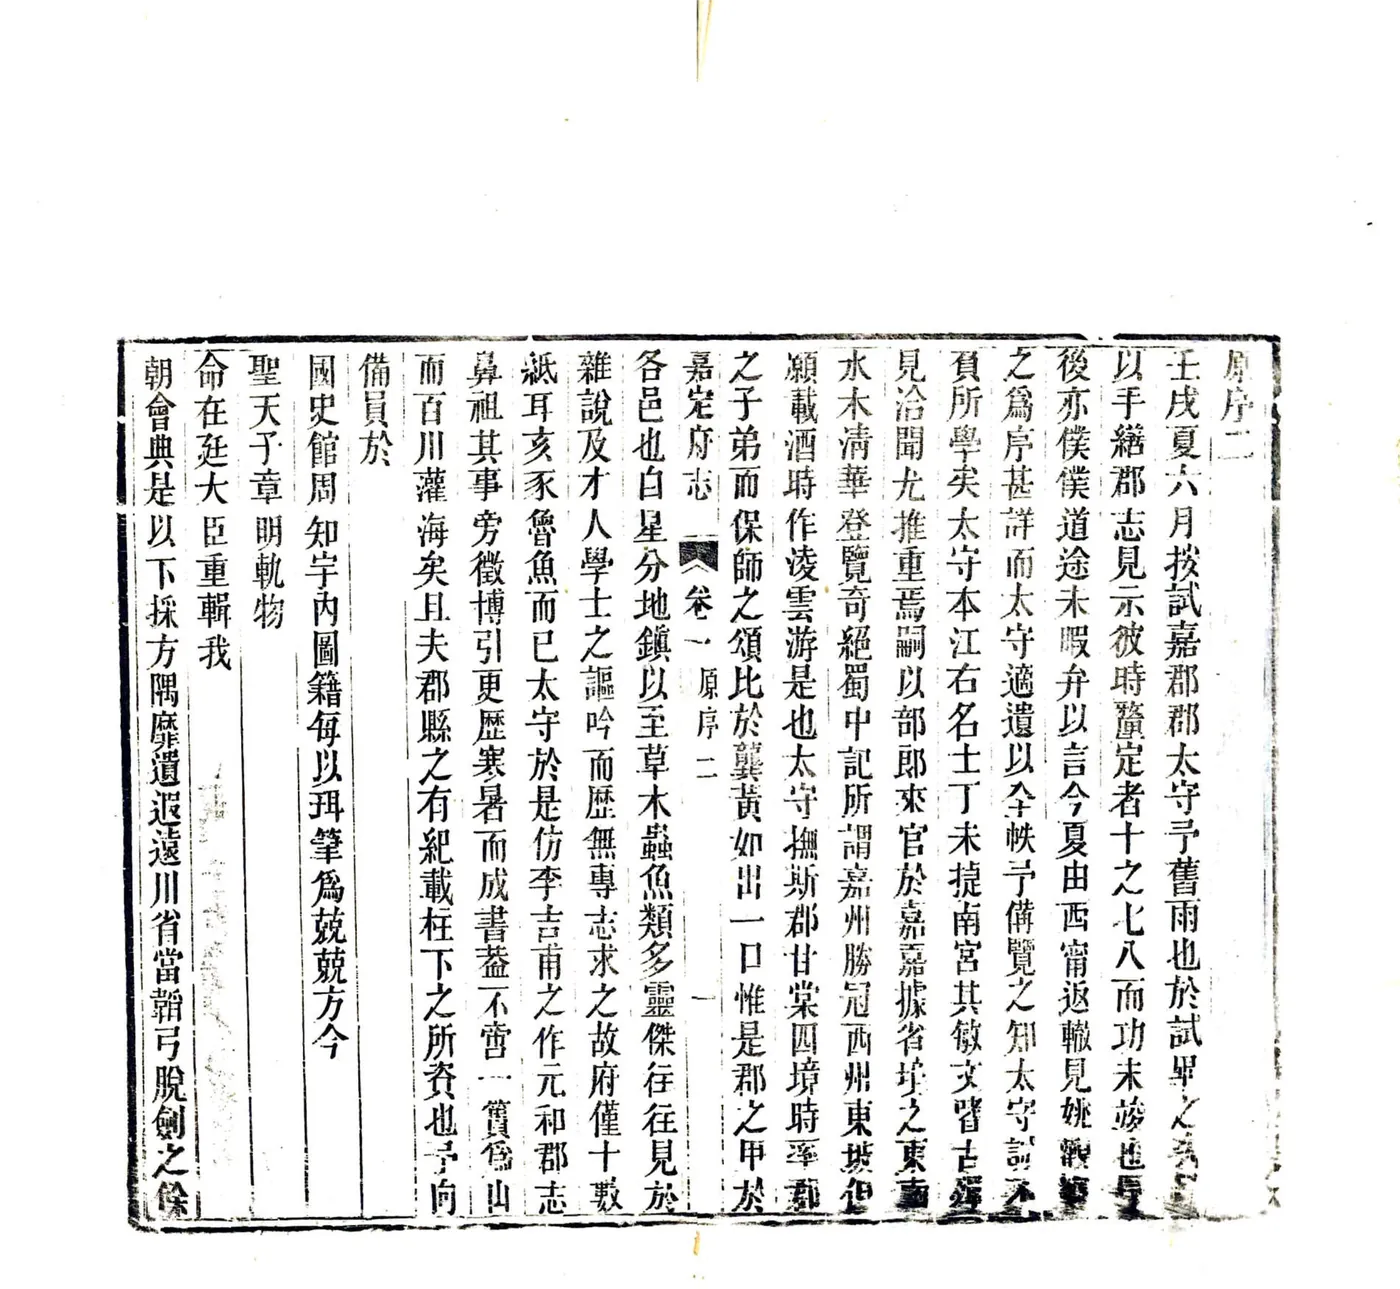 原序二
壬戌夏六月按試嘉郡郡太守予舊雨也於試畢之
以手繕郡志見示彼時釐定者十之七八而功未竣也
後亦僕僕道途未暇弁以言今夏由西甯返轍見姚
之爲序甚詳而太守適遺以全帙予偹覽之知太守誠不
負所學矣太守本江右名士丁未捷南宮其敏文
見洽聞尤推重焉嗣以部郎來官於嘉嘉據省垣之東南
水木清華登覽奇絕蜀中記所謂嘉州勝冠西州東坡
願載酒時作凌雲游是也太守撫斯郡甘棠四境時率郡
之子弟而保師之頌比於龔黃如出一口惟是郡之甲於
嘉定府志 卷一 原序二 一
各邑也白星分地鎭以至草木蟲魚類多靈傑往往見於
雜說及才人學士之謳吟而歷無專志求之故府僅十數
紙耳亥豕魯魚而已太守於是仿李吉甫之作元和郡志
鼻祖其事旁徵博引更歷寒暑而成書葢不啻一簣爲山
而百川灌海矣且夫郡縣之有紀載柱下之所資也予向
備員於
國史館周知宇內圖籍每以珥筆爲兢兢方今
聖天子章明軌物
命在廷大臣重輯我
朝會典是以下採方隅靡遺遐遠川省當韜弓脫劍之餘